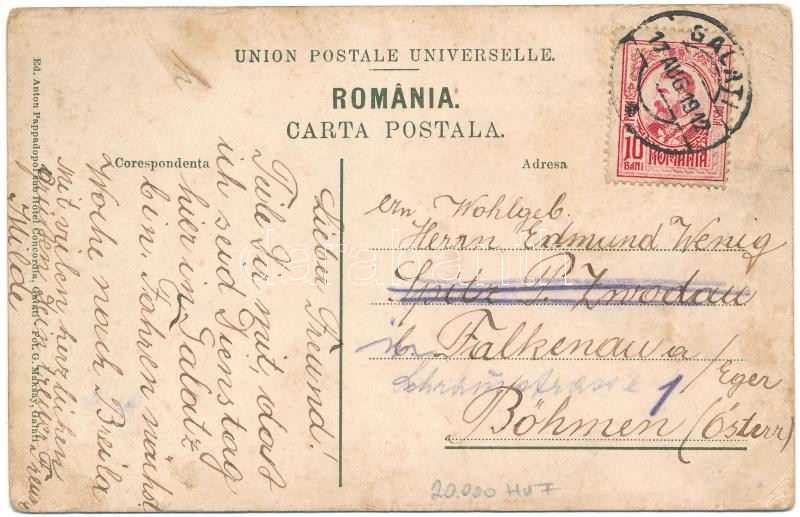 UNION POSTALE UNIVERSELLE.
ROMÂNIA.
CARTA POSTALA.
Corespondența
Adresa
GALAȚI
17 AUG 1912
10
BANI
ROMANIA
Lieber Freund!
Teile Dir mit, dass
ich seid Dienstag
hier in Galatz
bin. Fahren nächst
Woche nach Breila
Mit vielen herzlichen
Grüßen Dein treuer Freund
Wohlgeb.
Herrn Edmund Wenig
Spitz P. Zwodau
Falkenau a/
Eger
1
Böhmen (Österr)
20.000 HUF
Ed. Anton Pappadopol sub Hôtel Concordia, Galati. Fot. G. Maksay, Galati
darabanth